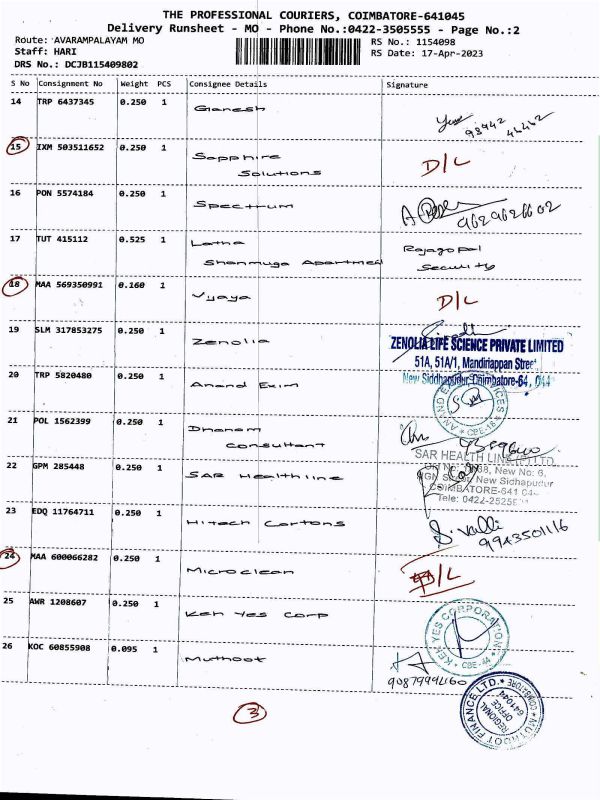 THE PROFESSIONAL COURIERS, COIMBATORE-641045
Delivery Runsheet - MO - Phone No.:0422-3505555 - Page No.:2
Route: AVARAMPALAYAM MO
Staff: HARI
DRS No.: DCJB115409802
RS No.: 1154098
RS Date: 17-Apr-2023
S No Consignment No Weight PCS Consignee Details Signature
14 TRP 6437345 0.250 1 Ganesh
98942
15 IXM 503511652 0.250 1 Sapphire Solutions D/L
16 PON 5574184 0.250 1 Spectrum
9629626602
17 TUT 415112 0.525 1 Latha Rajagopal
Shanmuga Apartmed Security
18 MAA 569350991 0.160 1 Vijaya D/L
19 SLM 317853275 0.250 1 Zenolia
ZENOLIA LIFE SCIENCE PRIVATE LIMITED
51A, 51A/1, Mandiriappan Street
New Siddhapudur, Coimbatore-64, 044
20 TRP 5820480 0.250 1 Anand Exim
CBE-18
21 POL 1562399 0.250 1 Dhanam
Consultant
22 GPM 285448 0.250 1 SAR Healthline
SAR HEALTH LINE P LTD
New No: 6,
New Sidhapudur
COIMBATORE-641 04
Tele: 0422-2525
23 EDQ 11764711 0.250 1 Hitech Cartons
S. Valli
9943501116
24 MAA 600066282 0.250 1 Microclean D/L
25 AWR 1208607 0.250 1 Keh Yes Corp
KEH YES CORPORATION
CBE-44
26 KOC 60855908 0.095 1 Muthoot
9087999460
MUTHOOT FINANCE LTD. COIMBATORE
REGIONAL OFFICE
641044
3